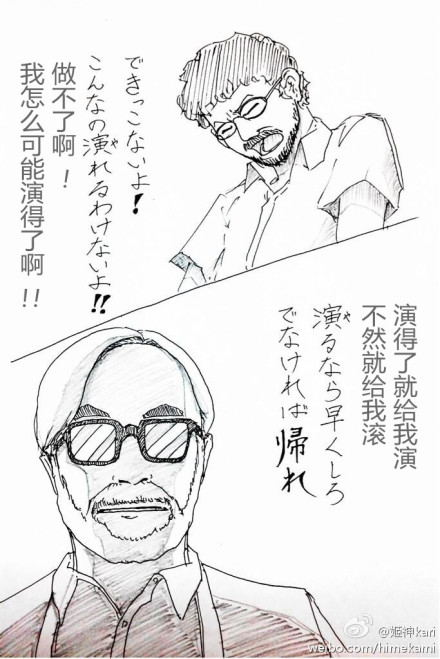 できっこないよ！
こんなの演れるわけないよ!!
や
做不了啊！
我怎么可能演得了啊!!
演得了就给我演
不然就给我滚
演るなら早くしろ
や
でなければ帰れ
@姬神kari
weibo.com/himekami